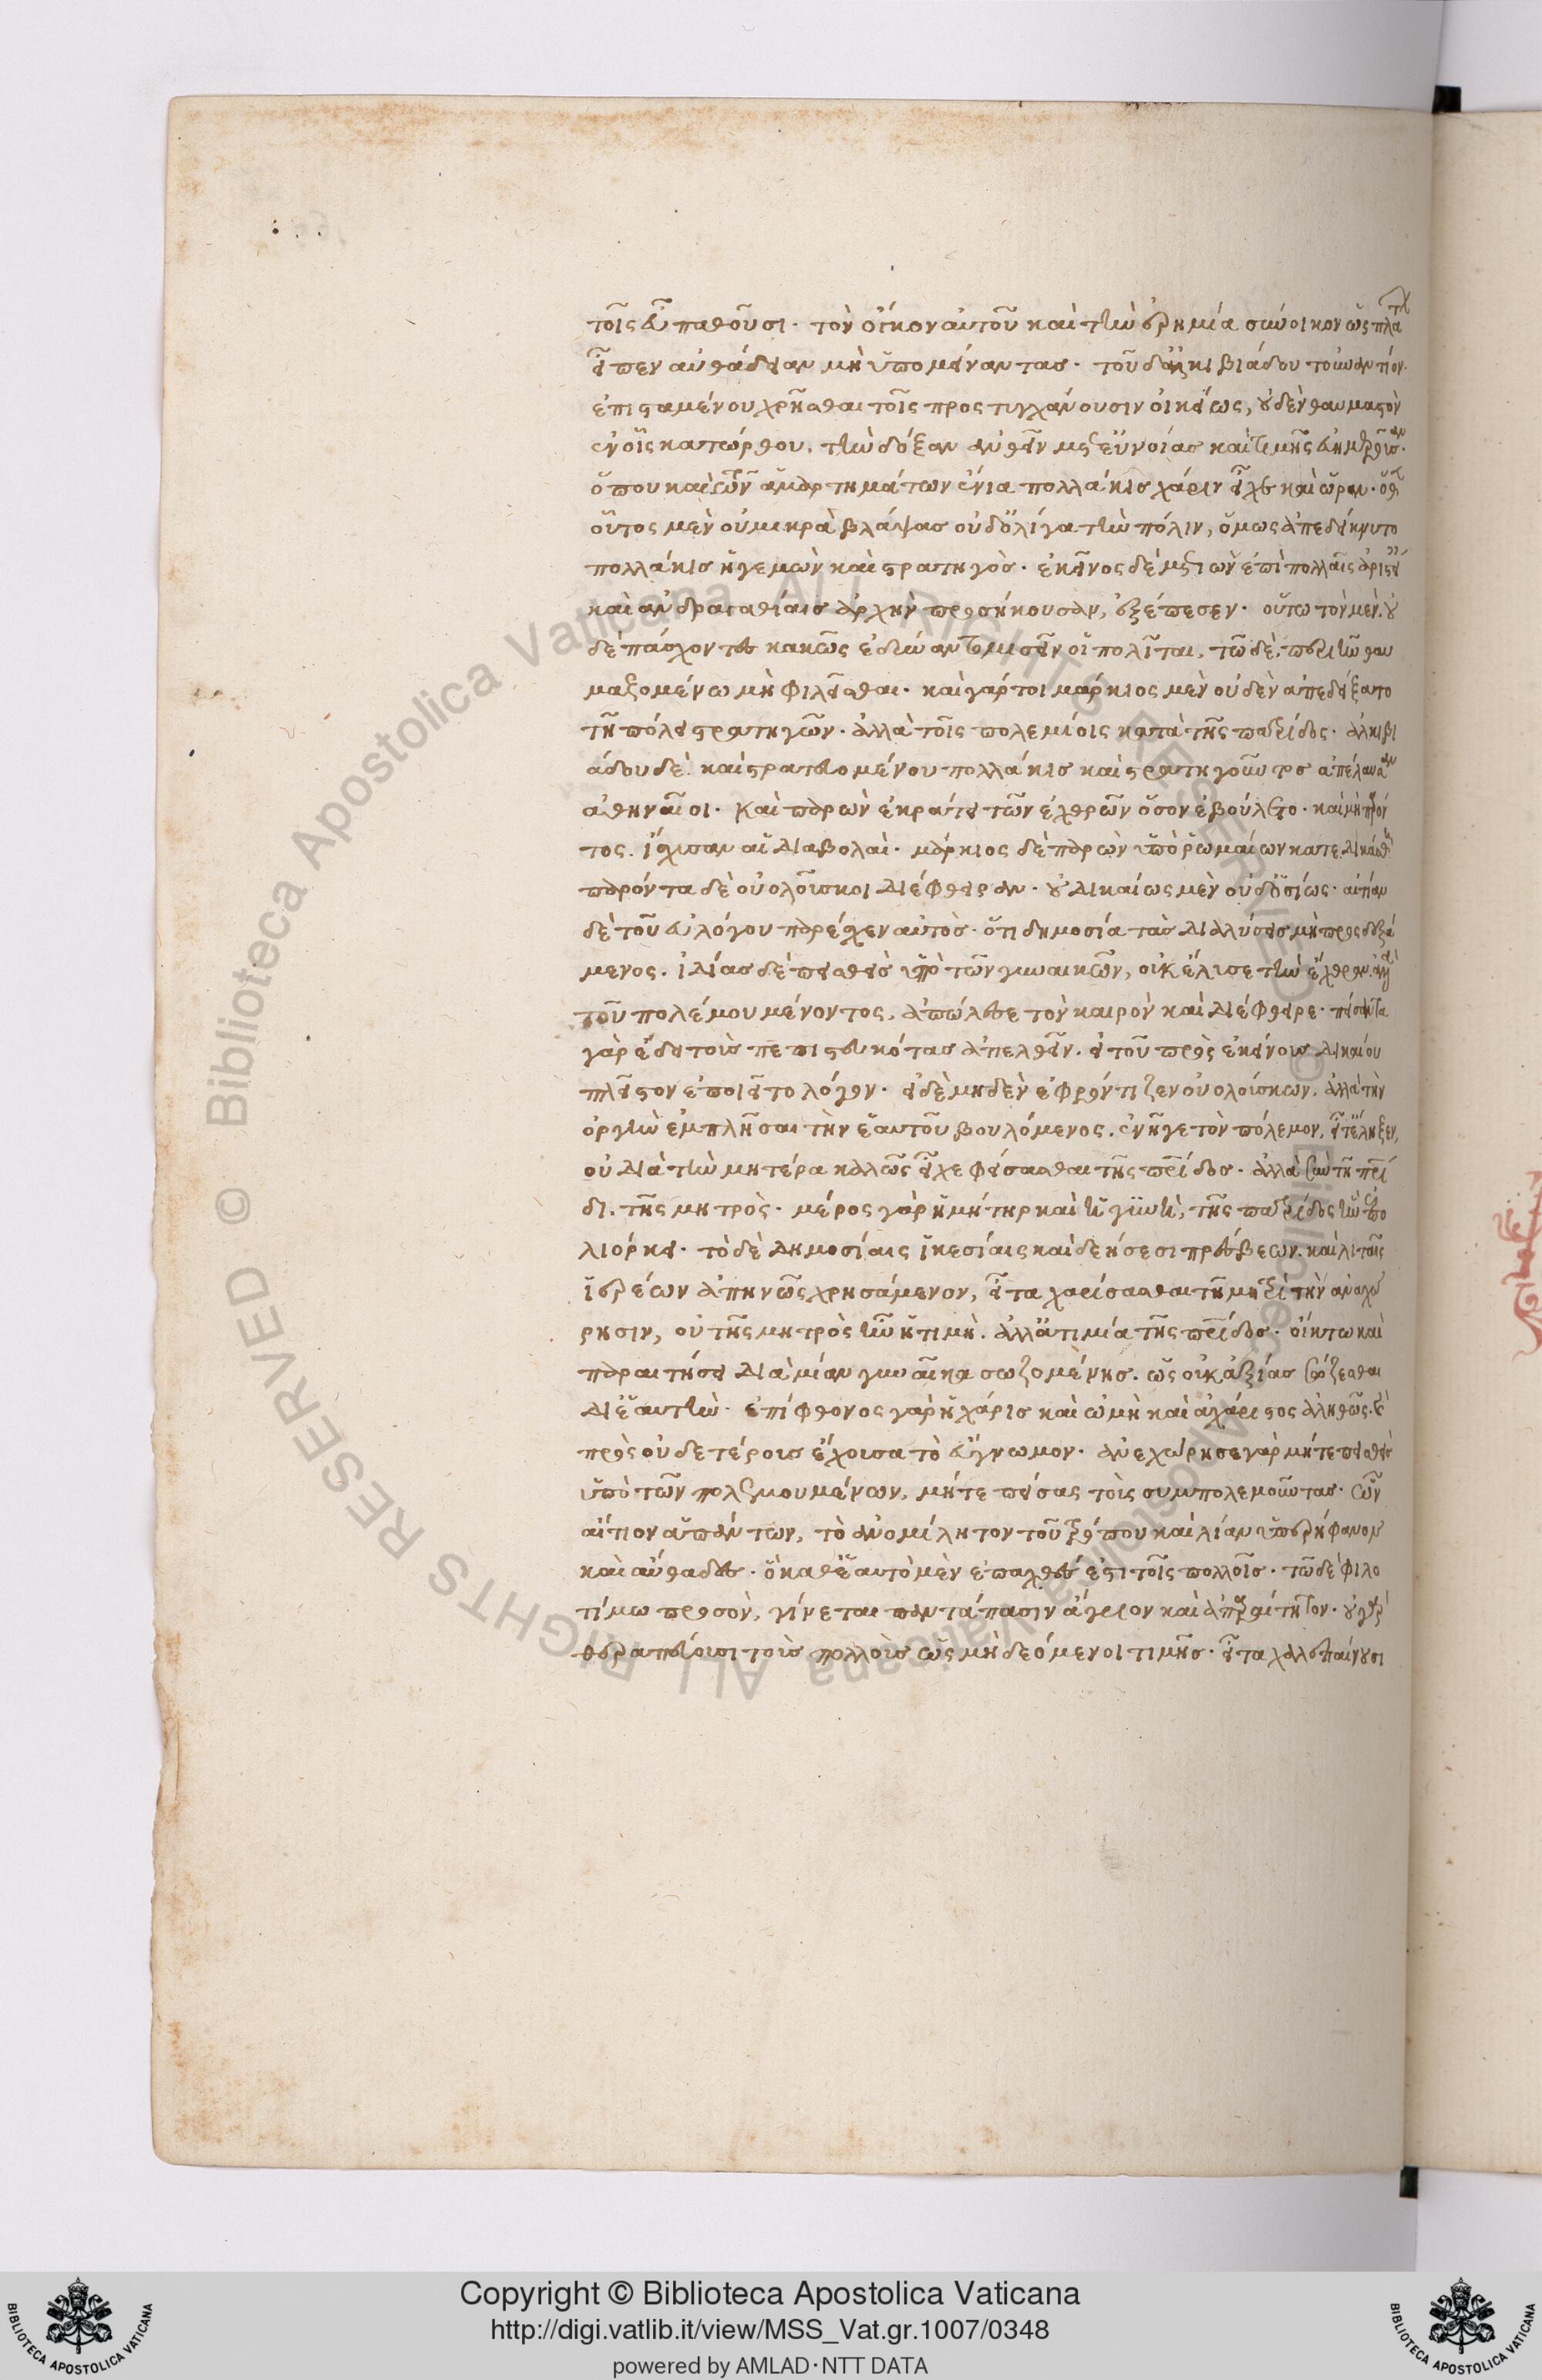 τοῖς εὖ παθοῦσι. τὸν ὄγκον αὐτοῦ καὶ τὴν ἐρημία σύνοικον ὡς πλάτων
εἶπεν αὐθάδειαν μὴ ὑπομείναντας. τοῦ δ' ἀλκιβιάδου τοὐναντίον.
ἐπισταμένου χρῆσθαι τοῖς προστυγχάνουσιν οἰκείως, οὐδὲν θαυμαστὸν
ἐν οἷς κατώρθου. τὴν δόξαν ἀνθεῖν μετ' εὐνοίας καὶ τιμῆς εὐημεροῦσαν.
ὅπου καὶ τῶν ἁμαρτημάτων ἔνια πολλάκις χάριν εἶχε καὶ ὥραν. ὅθεν
οὗτος μὲν οὐ μικρὰ βλάψας οὐδ' ὀλίγα τὴν πόλιν, ὅμως ἀπεδείκνυτο
πολλάκις ἡγεμὼν καὶ στρατηγός. ἐκεῖνος δὲ μετιὼν ἐπὶ πολλαῖς ἀριστείαις
καὶ ἀνδραγαθίαις ἀρχὴν προσήκουσαν, ἐξέπεσεν. οὕτω τὸν μὲν. οὐ
δὲ πάσχοντες κακῶς ἐδύναντο μισεῖν οἱ πολῖται, τῶ δὲ. περιῆν θαυ
μαζομένω μὴ φιλεῖσθαι. καὶ γάρ τοι μάρκιος μὲν οὐδὲν ἀπεδείξατο
τῆ πόλει στρατηγῶν. ἀλλὰ τοῖς πολεμίοις κατὰ τῆς πατρίδος. ἀλκιβι
άδου δὲ. καὶ στρατευομένου πολλάκις καὶ στρατηγοῦντος ἀπέλαυσαν
ἀθηναῖοι. καὶ παρὼν ἐκράτει τῶν ἐχθρῶν ὅσον ἐβούλετο. καὶ μὴ παρόν
τος. ἴσχυσαν αἱ διαβολαί. μάρκιος δὲ παρὼν ὑπὸ ῥωμαίων κατεδικάσθη
παρόντα δὲ οὐολοῦσκοι διέφθειραν. οὐ δικαίως μὲν οὐδ' ὁσίως. αἰτίαν
δὲ τοῦ εὐλόγου παρέσχεν αὐτὸς. ὅτι δημοσία τὰς διαλύσεις μὴ προσδεξά
μενος. ἰδίας δὲ πεισθεὶς ὑπὸ τῶν γυναικῶν, οὐκ ἔλυσε τὴν ἔχθραν. ἀλλὰ
τοῦ πολέμου μένοντος, ἀπώλεσε τὸν καιρὸν καὶ διέφθειρε. πείσαντα
γὰρ ἔδει τοὺς πεπιστευκότας ἀπελθεῖν. εἰ τοῦ πρὸς ἐκείνους δικαίου
πλεῖστον ἐποιεῖτο λόγον. εἰ δὲ μηδὲν ἐφρόντιζεν οὐολούσκων. ἀλλὰ τὴν
ὀργὴν ἐμπλῆσαι τὴν ἑαυτοῦ βουλόμενος. ἐνῆγε τὸν πόλεμον, εἶτ' ἔληξεν,
οὐ διὰ τὴν μητέρα καλῶς εἶχε φείσασθαι τῆς πατρίδος. ἀλλὰ σὺν τῆ πατρί
δι. τῆς μητρός. μέρος γὰρ ἡ μήτηρ καὶ ἡ γυνὴ, τῆς πατρίδος ἦν ἐπο
λιόρκει. τὸ δὲ δημοσίαις ἱκεσίαις καὶ δεήσεσι πρέσβεων. καὶ λιταῖς
ἱερέων ἀπηνῶς χρησάμενον, εἶτα χαρίσασθαι τῆ μητρὶ τὴν ἀναχώ
ρησιν, οὐ τῆς μητρὸς ἦν ἡ τιμὴ. ἀλλ' ἀτιμία τῆς πατρίδος. οἴκτω καὶ
παραιτήσει διὰ μίαν γυναῖκα σωζομένης. ὡς οὐκ ἀξίας σώζεσθαι
δι' ἑαυτὴν. ἐπίφθονος γὰρ ἡ χάρις καὶ ὠμὴ καὶ ἀχάριστος ἀληθῶς. καὶ
πρὸς οὐδετέρους ἔχουσα τὸ εὔγνωμον. ἀνεχώρησε γὰρ μήτε πεισθεὶς
ὑπὸ τῶν πολεμουμένων, μήτε πείσας τοὺς συμπολεμοῦντας. ὧν
αἴτιον ἁπάντων, τὸ ἀνομίλητον τοῦ τρόπου καὶ λίαν ὑπερήφανον
καὶ αὔθαδες. ὃ καθ' ἑαυτὸ μὲν ἐπαχθές ἐστι τοῖς πολλοῖς. τῶ δὲ φιλο
τίμω προσὸν, γίνεται παντάπασιν ἄγριον καὶ ἀπαραίτητον. οὐ γὰρ
θεραπεύουσι τοὺς πολλοὺς ὡς μὴ δεόμενοι τιμῆς. εἶτα χαλεπαίνουσι
© Biblioteca Apostolica Vaticana ALL RIGHTS RESERVED
Copyright © Biblioteca Apostolica Vaticana
http://digi.vatlib.it/view/MSS_Vat.gr.1007/0348
powered by AMLAD·NTT DATA
BIBLIOTECA APOSTOLICA VATICANA
BIBLIOTECA APOSTOLICA VATICANA